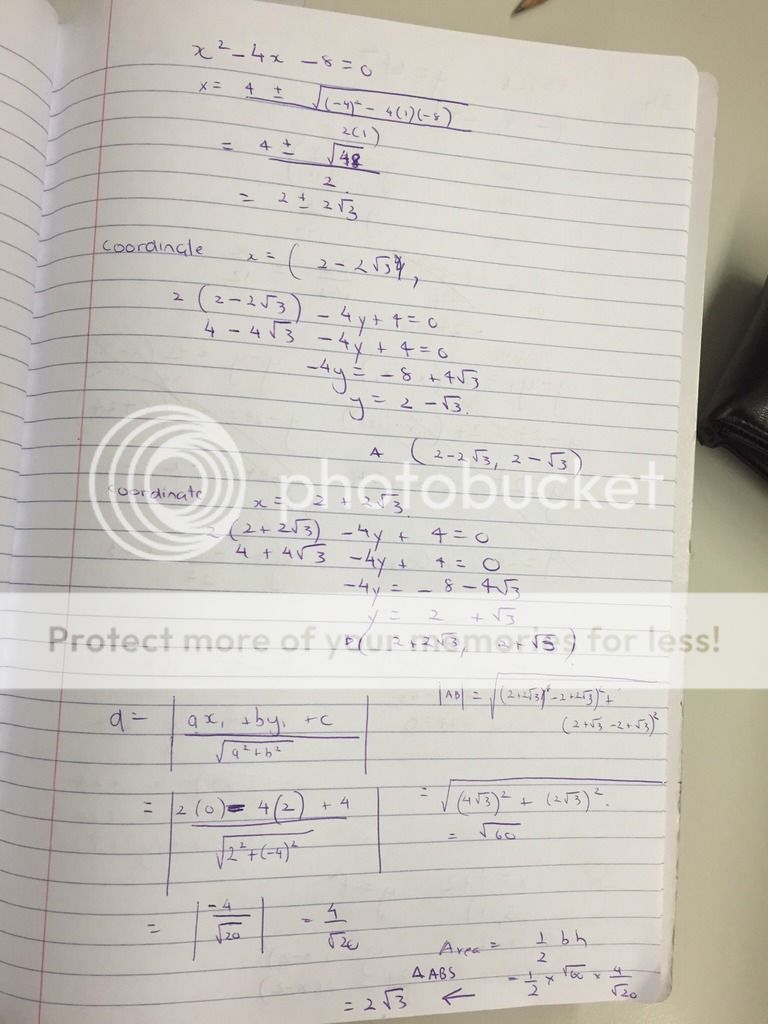 x² - 4x - 8 = 0
x = 4 ± √((-4)² - 4(1)(-8))
2(1)
= 4 ± √48
2
= 2 ± 2√3
coordinate x = ( 2 - 2√3,
2 (2 - 2√3) - 4y + 4 = 0
4 - 4√3 - 4y + 4 = 0
-4y = -8 + 4√3
y = 2 - √3.
A (2-2√3, 2-√3)
photobucket
coordinate x = 2 + 2√3.
2 (2 + 2√3) - 4y + 4 = 0
4 + 4√3 - 4y + 4 = 0
-4y = -8 - 4√3
y = 2 + √3
Protect more of your memories for less!
B( 2+2√3, 2+√3 )
|AB| = √((2+2√3) - 2+2√3)² +
(2+√3 - 2+√3)²
d = | ax₁ + by₁ + c |
√(a² + b²)
= | 2(0) - 4(2) + 4 |
√(2² + (-4)²)
= √((4√3)² + (2√3)².
= √60
= | -4 | = 4
√20 √20
Area = 1/2 bh
△ABS = 1/2 × √60 × 4/√20
= 2√3 ←